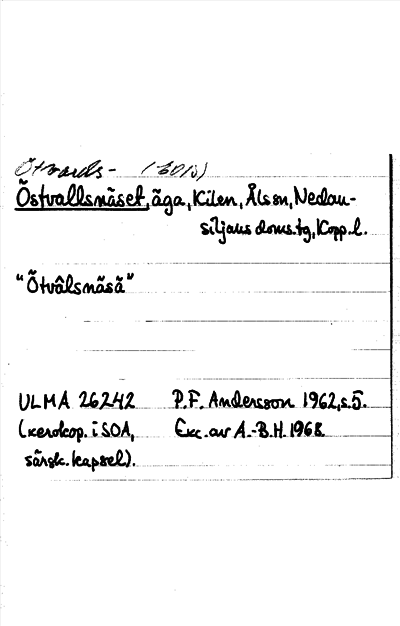 Ötvards-
Östvallsnäset, äga, Kilen, Ål sn, Nedan-
siljans doms.tg, Kopp. l.
"Ötvâlsnäsä"
ULMA 26242 P.F. Andersson 1962, s. 5.
(xerokop. i SOA, Exc. av A.-B.H. 1968.
särsk. kapsel).